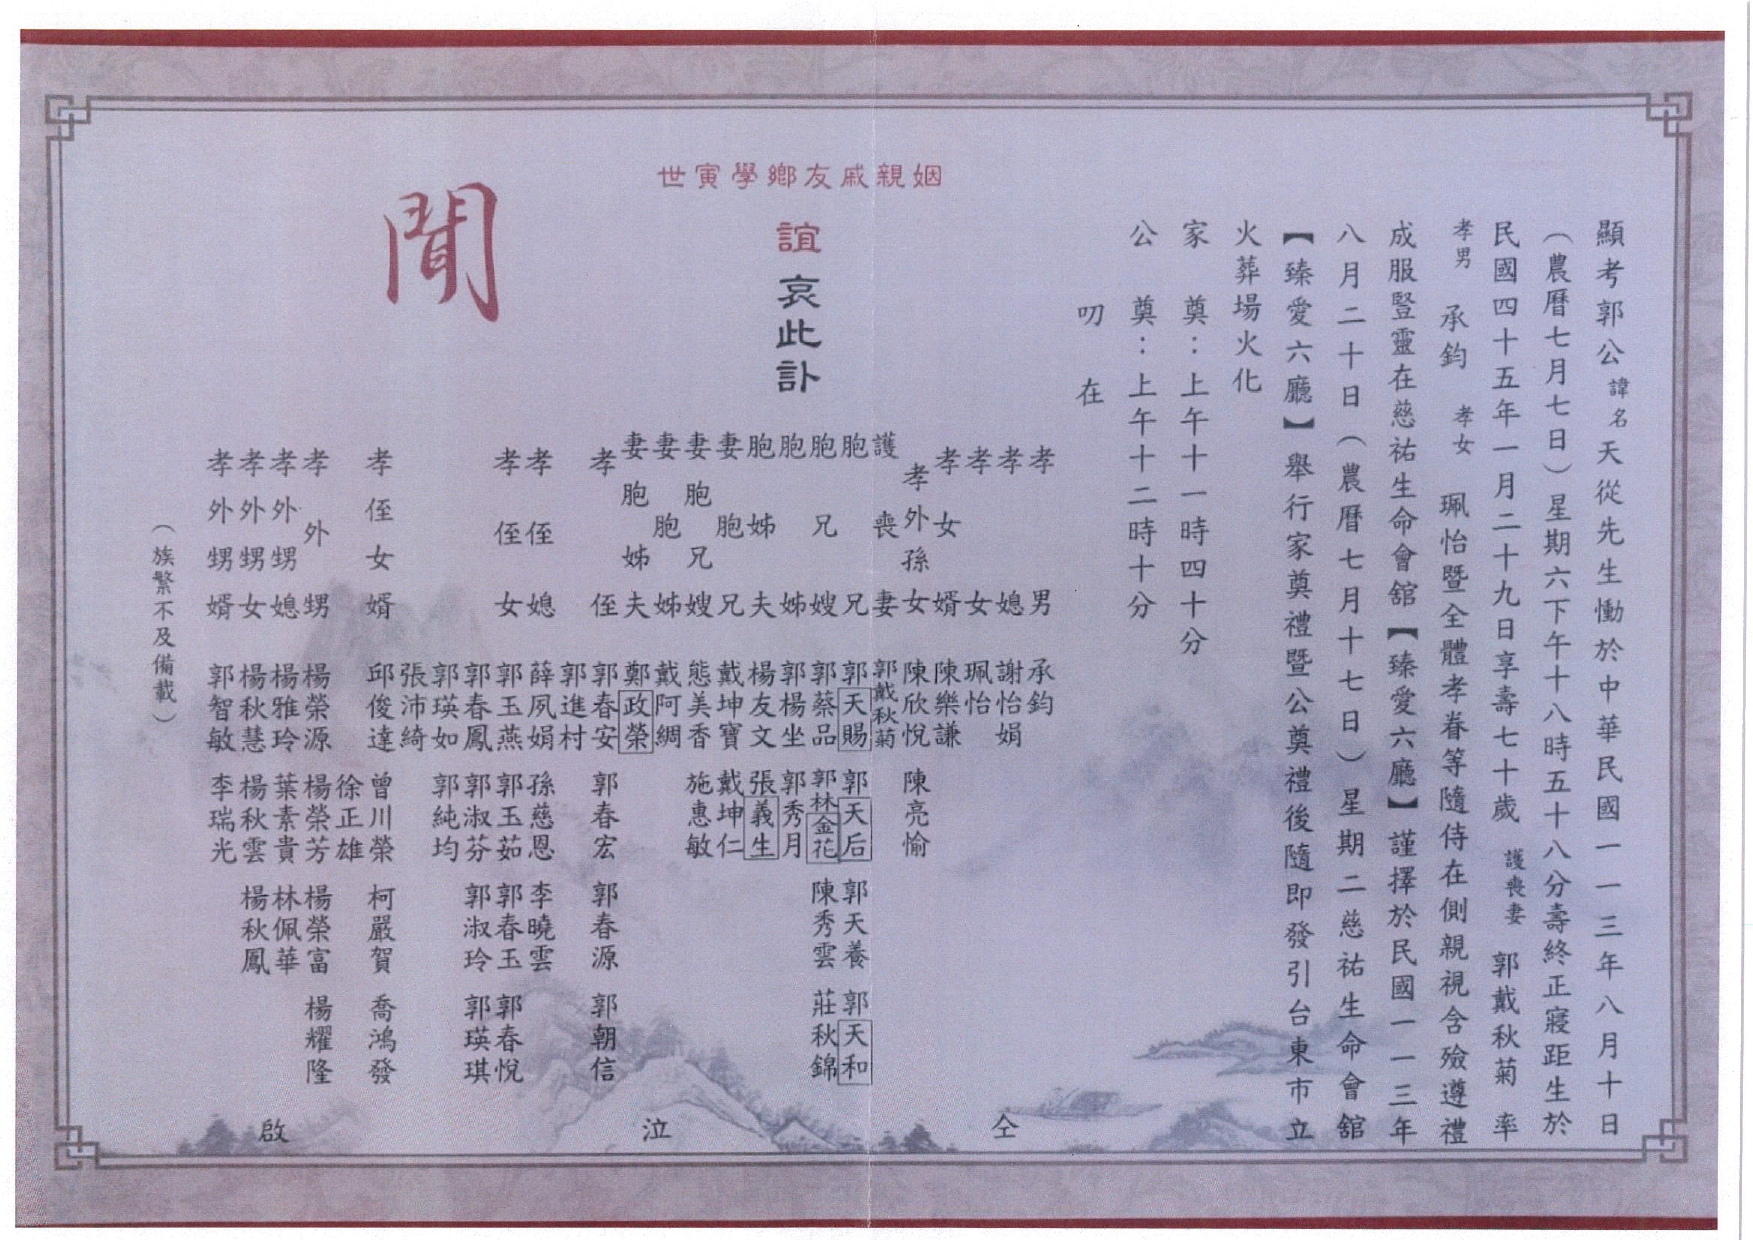 顯考郭公諱名天從先生慟於中華民國一一三年八月十日
（農曆七月七日）星期六下午十八時五十八分壽終正寢距生於
民國四十五年一月二十九日享壽七十歲 護喪妻 郭戴秋菊 率
孝男 承鈞 孝女 珮怡暨全體孝眷等隨侍在側親視含殮遵禮
成服豎靈在慈祐生命會館【臻愛六廳】謹擇於民國一一三年
八月二十日（農曆七月十七日）星期二慈祐生命會館
【臻愛六廳】舉行家奠禮暨公奠禮後隨即發引台東市立
火葬場火化
家奠：上午十一時四十分
公奠：上午十二時十分
叨在
姻親戚友鄉學寅世
誼哀此訃
聞
孝男 承鈞
孝媳 謝怡娟
孝女 珮怡
孝女婿 陳樂謙
孝外孫女 陳欣悅 陳亮愉
護喪妻 郭戴秋菊
胞兄 郭天賜 郭天后 郭天養 郭天和
胞兄嫂 郭蔡品 郭林金花 陳秀雲 莊秋錦
胞姊 郭楊坐 郭秀月
胞姊夫 楊友文 張義生
妻胞兄 戴坤寶 戴坤仁
妻胞兄嫂 態美香 施惠敏
妻胞姊 戴阿綢
妻胞姊夫 鄭政榮
孝侄 郭春安 郭春宏 郭春源 郭朝信
郭進村
孝侄媳 薛夙娟 孫慈恩 李曉雲
孝侄女 郭玉燕 郭玉茹 郭春玉 郭春悅
郭春鳳 郭淑芬 郭淑玲 郭瑛琪
郭瑛如 郭純均
張沛綺
孝侄女婿 邱俊達 曾川榮 柯嚴賀 喬鴻發
徐正雄
孝外甥 楊榮源 楊榮芳 楊榮富 楊耀隆
孝外甥媳 楊雅玲 葉素貴 林佩華
孝外甥女 楊秋慧 楊秋雲 楊秋鳳
孝外甥婿 郭智敏 李瑞光
（族繁不及備載）
仝 泣 啟